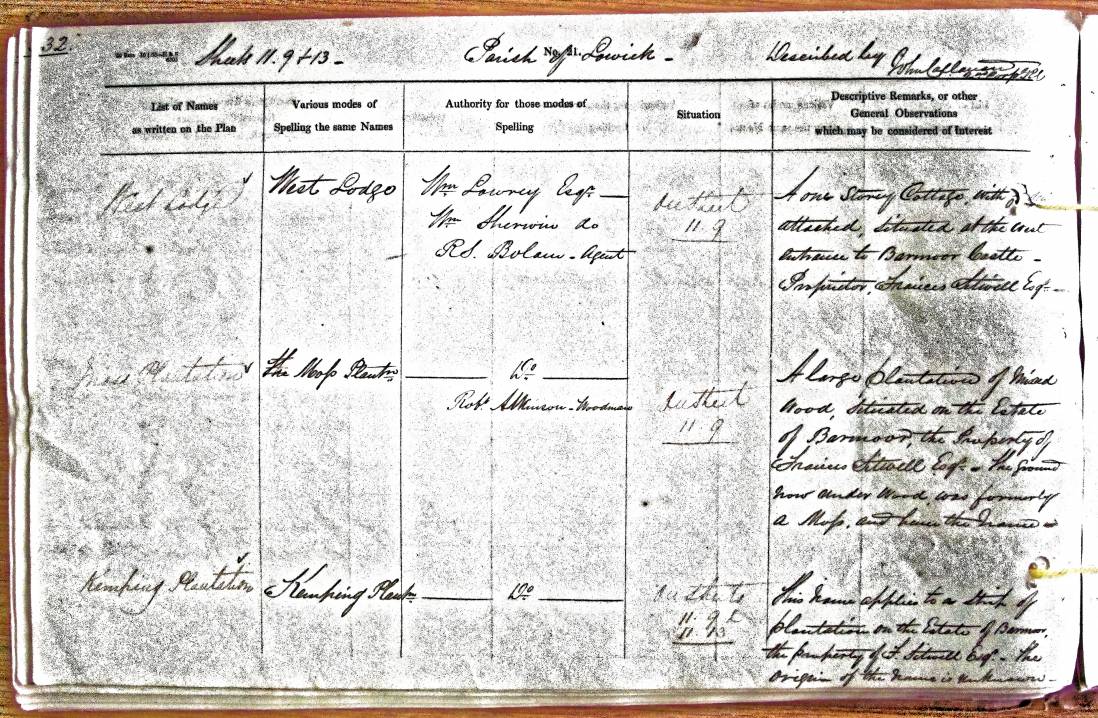 32.
Sheets 11. 9 & 13 -
Parish of Lowick -
No. 21.
Described by
List of Names
as written on the Plan
Various modes of
Spelling the same Names
Authority for those modes of
Spelling
Situation
Descriptive Remarks, or other
General Observations
which may be considered of Interest
West Lodge
West Lodge
Wm Lowrey Esqr
Wm Sherwin do
R.S. Bolam - Agent
On Sheet
11. 9
A one Storey Cottage, with
attached, situated at the west
entrance to Barmoor Castle -
Proprietor, Francis Sitwell Esqr -
Moss Plantation
The Moss Plantn
Do
Robt Atkinson - Woodman
On Sheet
11. 9
A large plantation of Mixed
Wood, Situated on the Estate
of Barmoor, the Property of
Francis Sitwell Esqr - The ground
now under Wood was formerly
a Moss, and hence the Name -
Kemping Plantation
Kemping Plantn
Do
On Sheets
11. 9 &
11. 13
This Name applies to a strip of
plantation on the Estate of Barmoor,
the property of F. Sitwell Esqr - The
origin of the Name is unknown -